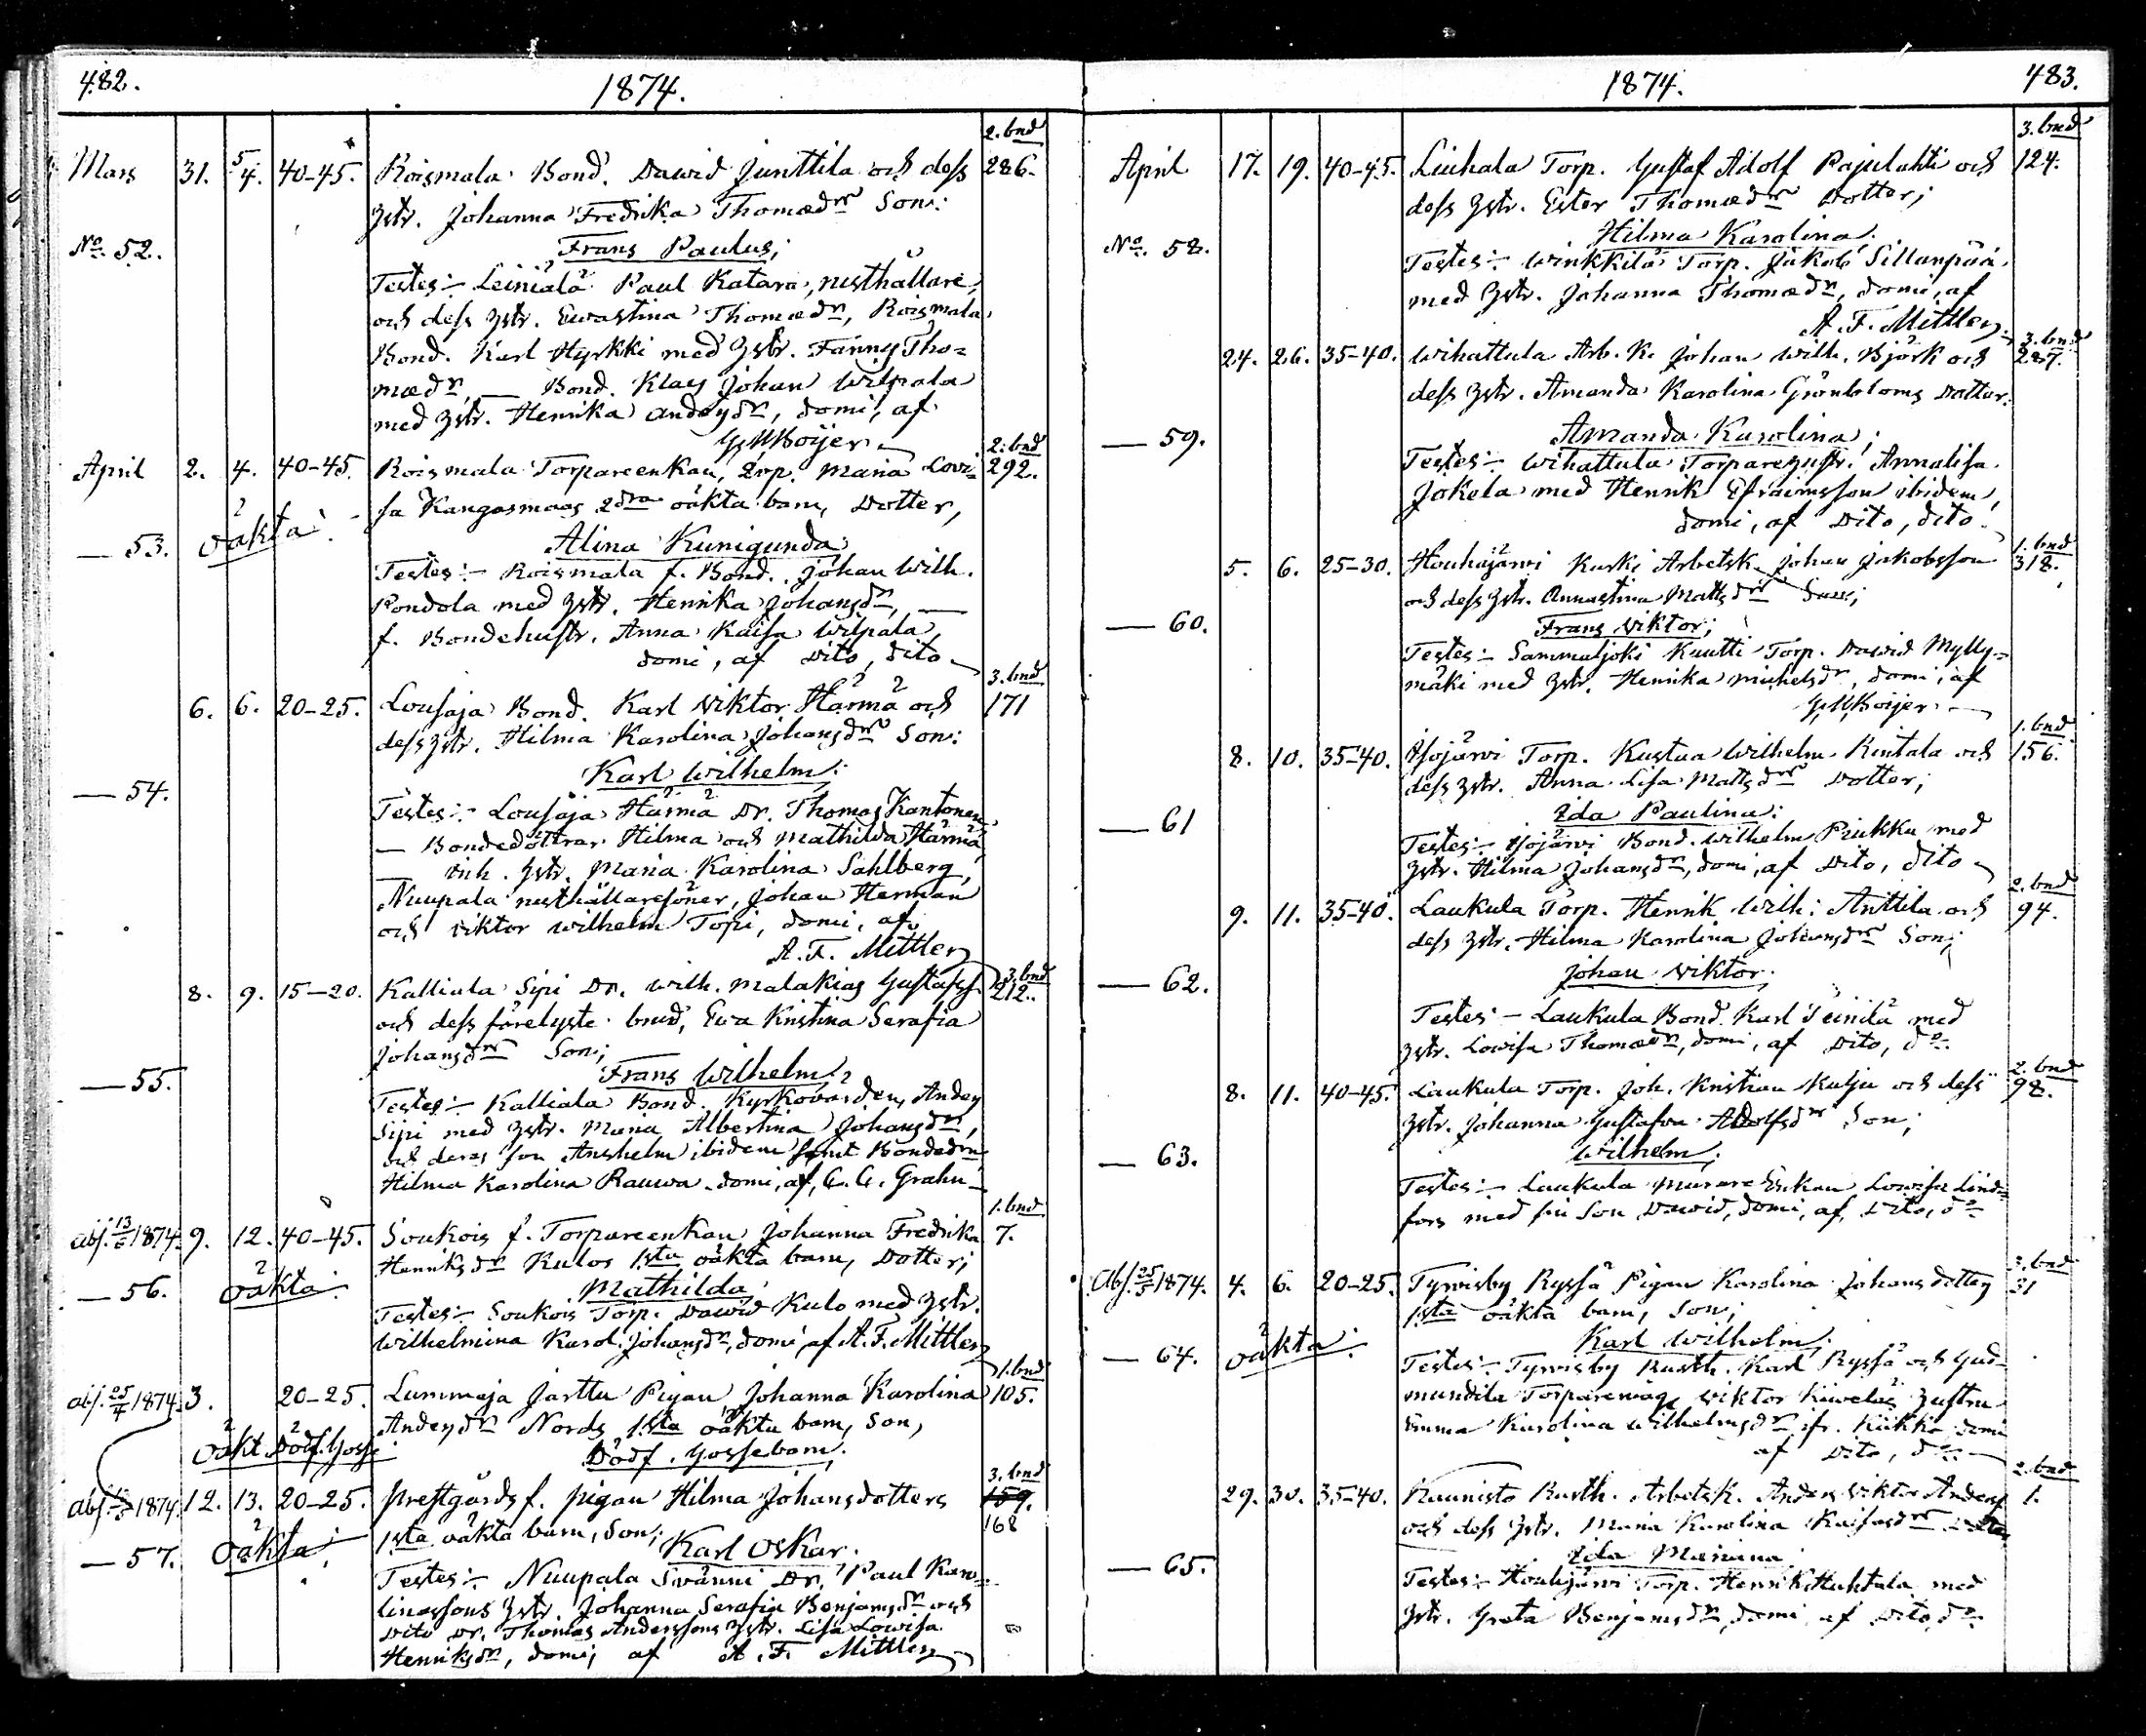 482.
1874.
2. bnd
Mars 31. 5/4. 40-45. Roismala Bond. Dawid Junttila och dess 286.
hstr. Johanna Fredrika Thomædr Son:
No. 52. Frans Paulus;
Testes:- Leiniälä Paul Katara, rusthållare,
och dess hstr. Ewastina Thomædr, Roismala
Bond. Karl Hyrkki med hstr. Fanny Tho=
mædr, — Bond. Klas Johan Wilpala
med hstr. Henrika Andersdr, domi, af
G. W. Boijer 2. bnd
April 2. 4. 40-45. Roismala Torpareenkan, Inp. Maria Lovi= 292.
sa Kangasmaas 2dra oäkta barn, Dotter,
— 53. oäkta. Alina Kunigunda;
Testes:- Roismala f. Bond. Johan Wilh.
Pondola med hstr. Henrika Johansdr, —
f. Bondehustr. Anna Kaisa Wilpala,
domi, af Dito, dito
3. bnd
6. 6. 20-25. Lousaja Bond. Karl Viktor Härmä och 171
dess hstr. Hilma Karolina Johansdr Son:
Karl Wilhelm;
— 54.
Testes:- Lousaja Härmä Dr. Thomas Kantonen,
— Bondedöttrar Hilma och Mathilda Härmä,
— inh. hstr. Maria Karolina Sahlberg,
Nuupala rusthållaresöner, Johan Herman
och Viktor Wilhelm Topi, domi, af
A. F. Mittler
3. bnd
8. 9. 15-20. Kalliala Sipi Dr. Wilh. Malakias Gustafss. 212.
och dess förelyste brud, Ewa Kristina Serafia
Johansdr Son;
— 55. Frans Wilhelm;
Testes:- Kalliala Bond. Kyrkovärden, Anders
Sipi med hstr. Maria Albertina Johansdr,
och deras son Anshelm ibidem samt Bondedrn
Hilma Karolina Rauwa domi, af, C. C. Grahn
1. bnd
abs. 13/6 1874. 9. 12. 40-45. Soukois f. Torpareenkan Johanna Fredrika 7.
Henriksdr Kulos 1sta oäkta barn, Dotter;
— 56. oäkta. Mathilda
Testes:- Soukois Torp. Dawid Kulo med hstr.
Wilhelmina Karol. Johansdr, domi, af A. F. Mittler
1. bnd
abs. 25/4 1874. 3. 20-25. Lummaja Jarttu Pigan Johanna Karolina 105.
Andersdr Nords 1sta oäkta barn, Son,
oäkt. Dödf. Gosse Dödf. gossebarn.
3. bnd
abs. 1874. 12. 13. 20-25. Prestgårds f. pigan Hilma Johansdotters 159.
1sta oäkta barn, Son; 168
— 57. oäkta. Karl Oskar.
Testes:- Nuupala Swänni Dr. Paul Karo=
linassons hstr. Johanna Serafia Benjamsdr och
Dito Dr. Thomas Anderssons hstr. Lisa Lowisa
Henriksdr, domi, af A. F. Mittler
1874. 483.
3. bnd
April 17. 19. 40-45. Liuhala Torp. Gustaf Adolf Pajulahti och 124.
dess hstr. Ester Thomædr Dotter;
No. 58. Hilma Karolina.
Testes:- Winkkilä Torp. Jakob Sillanpää
med hstr. Johanna Thomædr, domi, af
A. F. Mittler 3. bnd
24. 26. 35-40. Wihattula Arb. k. Johan Wilh. Björk och 287.
dess hstr. Amanda Karolina Grönbloms Dotter.
— 59. Amanda Karolina;
Testes:- Wihattula Torparehustr. Annalisa
Jokela med Henrik Efraimsson ibidem,
domi, af Dito, dito
1. bnd
5. 6. 25-30. Houhajärwi Kurki Arbetsk. Johan Jakobsson 318.
och dess hstr. Annastina Mattsdr Son;
— 60. Frans Viktor;
Testes:- Sammaljoki Kuutti Torp. Dawid Mylly=
mäki med hstr. Henrika Michelsdr, domi, af
G. W. Boijer
1. bnd
8. 10. 35-40. Isojärwi Torp. Kustaa Wilhelm Rintala och 156.
dess hstr. Anna Lisa Mattsdr Dotter;
— 61 Ida Paulina:
Testes:- Isojärwi Bond. Wilhelm Piukku med
hstr. Hilma Johansdr, domi, af Dito, dito
2. bnd
9. 11. 35-40. Laukula Torp. Henrik Wilh: Anttila och 94.
dess hstr. Hilma Karolina Johansdr Son;
— 62. Johan Viktor.
Testes - Laukula Bond. Karl Teinilä med
hstr. Lowisa Thomædr, domi, af Dito, do
2. bnd
8. 11. 40-45. Laukula Torp. Joh. Kristian Kulju och dess 98.
hstr. Johanna Gustafva Adolfsdr Son;
— 63. Wilhelm;
Testes:- Laukula Murare Enkan Lowisa Lind=
fors med sin Son Dawid, domi, af, Dito, do
3. bnd
Abs. 25/5 1874. 4. 6. 20-25. Tyrwisby Ryssä Pigan Karolina Johansdotters 31
1sta oäkta barn, Son;
— 64. oäkta. Karl Wilhelm;
Testes:- Tyrwisby Rusth. Karl Ryssä och Gud=
mundila Torparemågs Viktor Kiwelas hustru
Emma Karolina Wilhelmsdr, fr. Kiikka domi
af Dito, do
2. bnd
29. 30. 35-40. Raunisto Rusth. Arbetsk. Anders Viktor Anderss. 1.
och dess hstr. Maria Karolina Kaisasdr Dotter
— 65. Ida Mariana
Testes:- Houhijärwi Torp. Henrik Huhtala med
hstr. Greta Benjamsdr, domi, af Dito, do